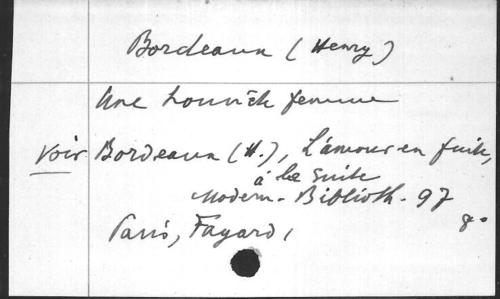 Bordeaux (Henry)
Une honnête femme
Voir Bordeaux (H.), L'amour en fuite,
à la suite
Modern-Biblioth. 97
8°
Paris, Fayard,